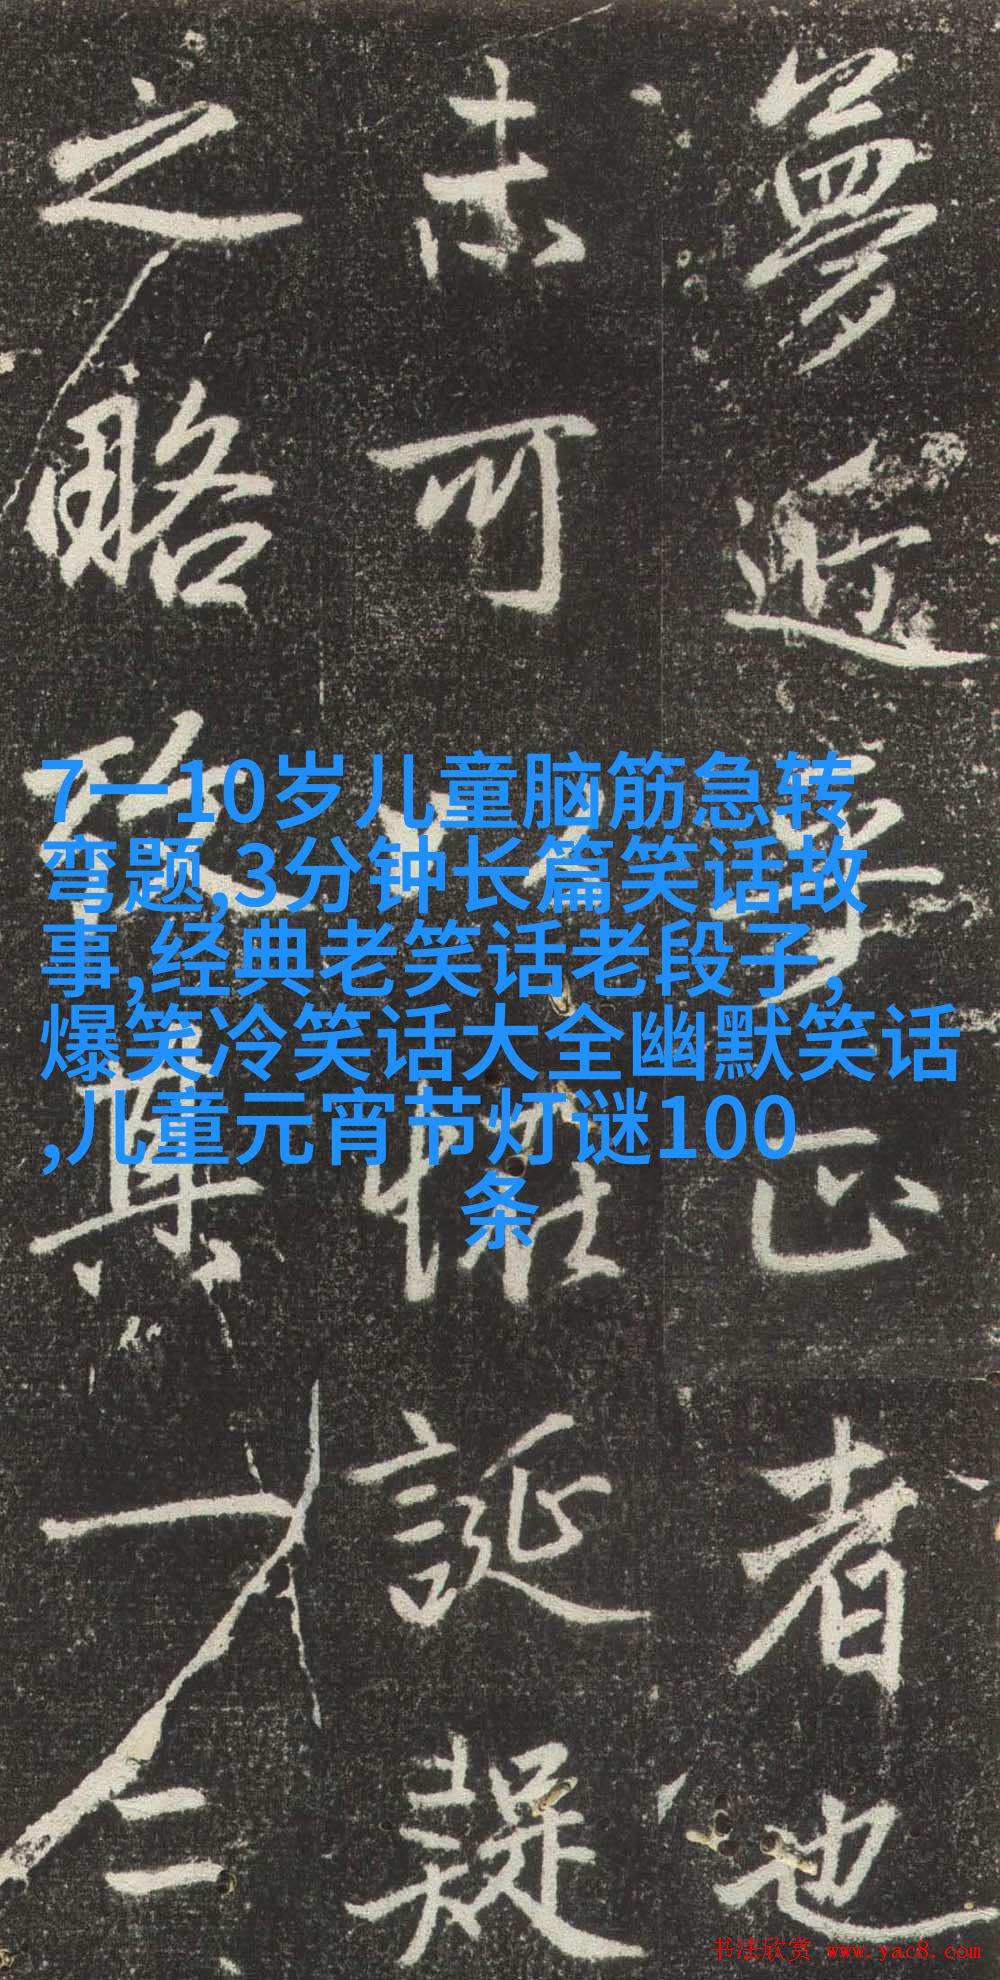 7一10岁儿童脑筋急转
弯题,3分钟长篇笑话故
事,经典老笑话老段子,
爆笑冷笑话大全幽默笑话
,儿童元宵节灯谜100
条
夢近正者也
未可怪誕疑
之略其一二
书法欣赏 www.yac8.com